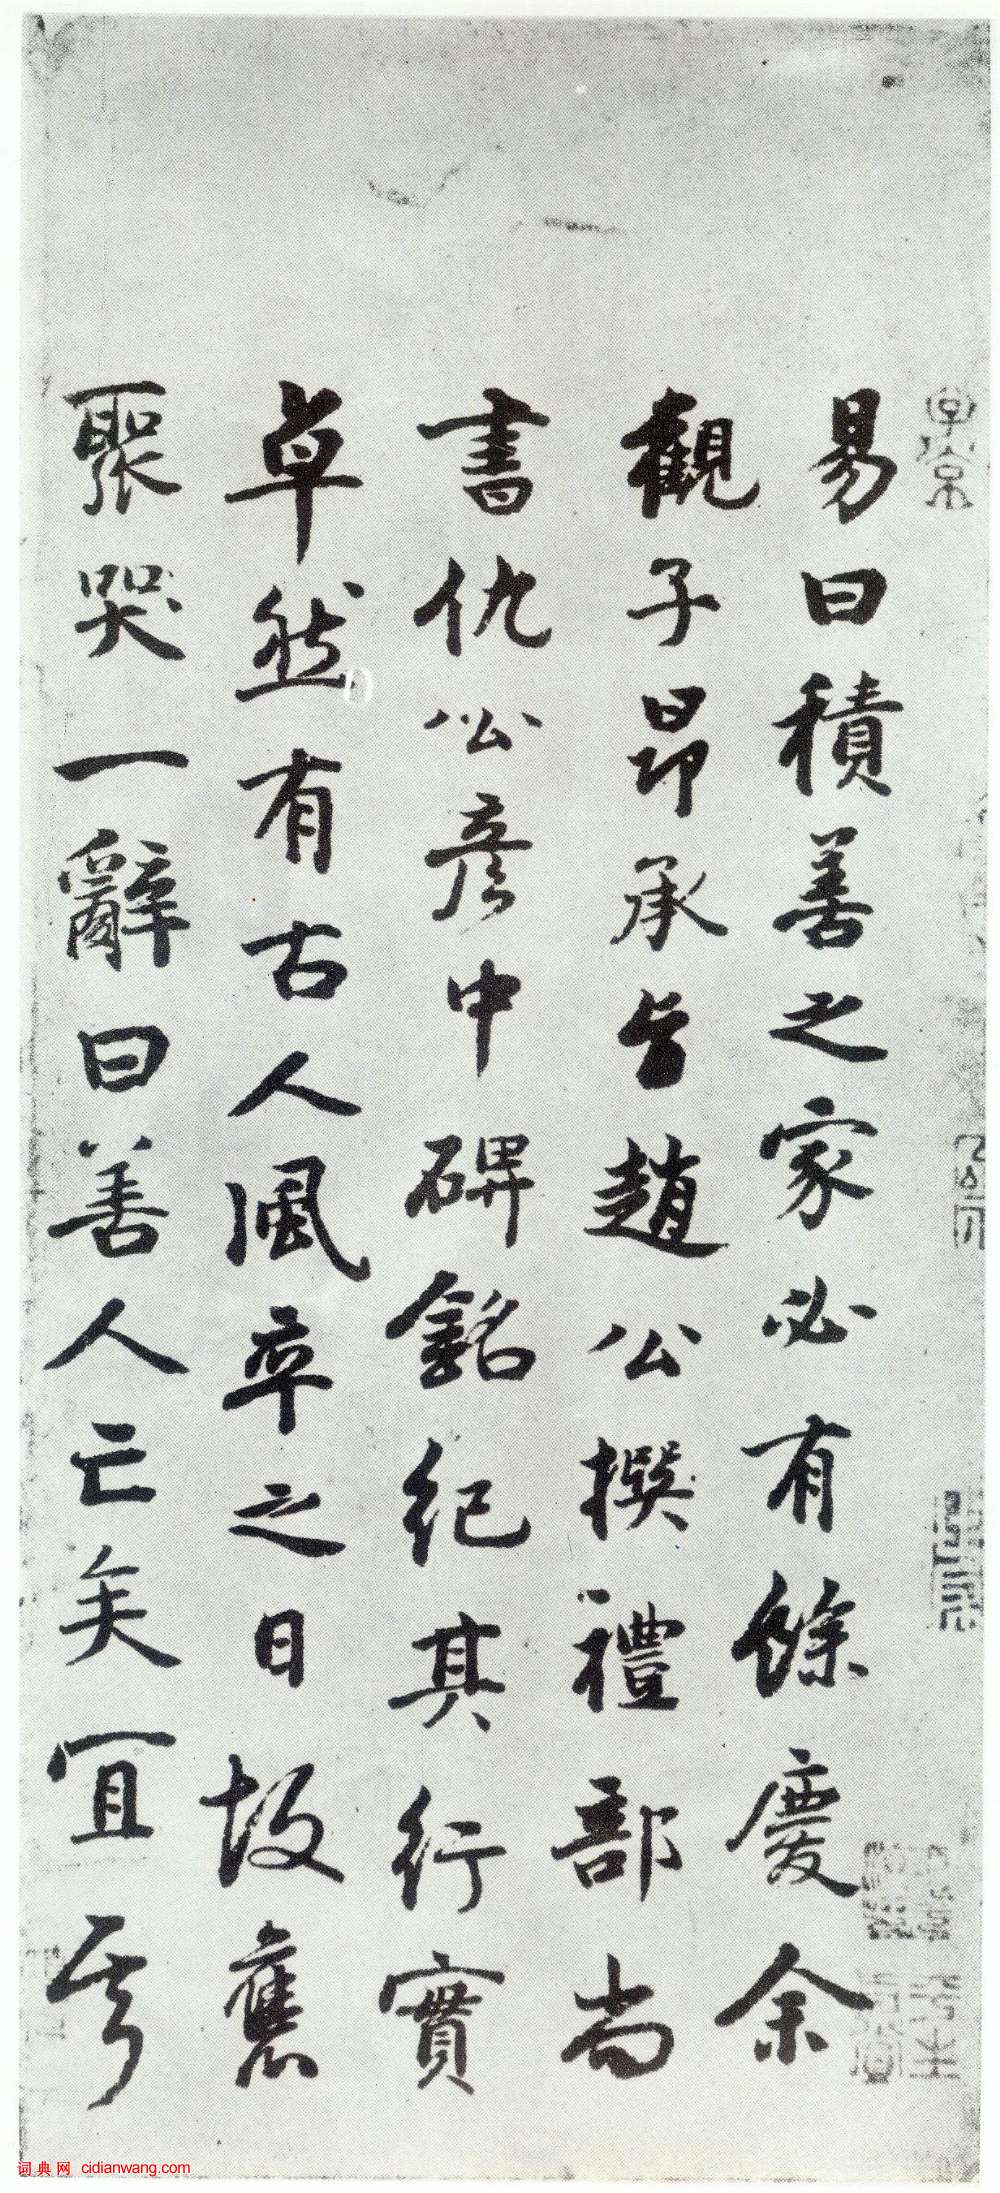 易曰積善之家必有餘慶余
觀子昂承旨趙公撰禮部尚
書仇公彥中碑銘紀其行實
卓然有古人風卒之日故舊
聚哭一辭曰善人亡矣宜乎
子京
词典网 cidianwang.com